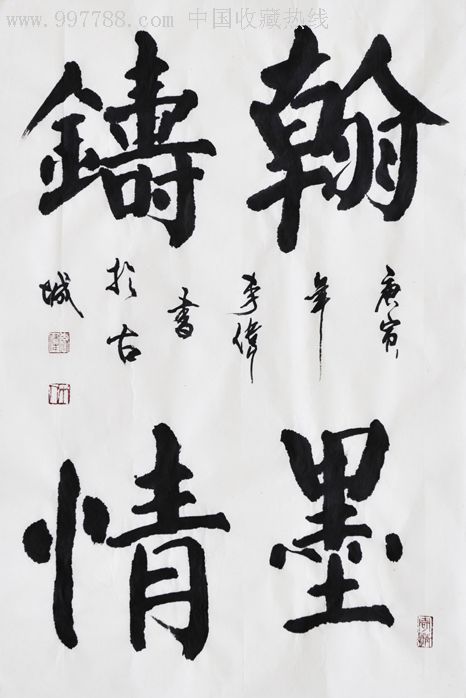 www.997788.com 中国收藏热线
翰墨
鑄情
庚寅
年
李偉
書
於古
城